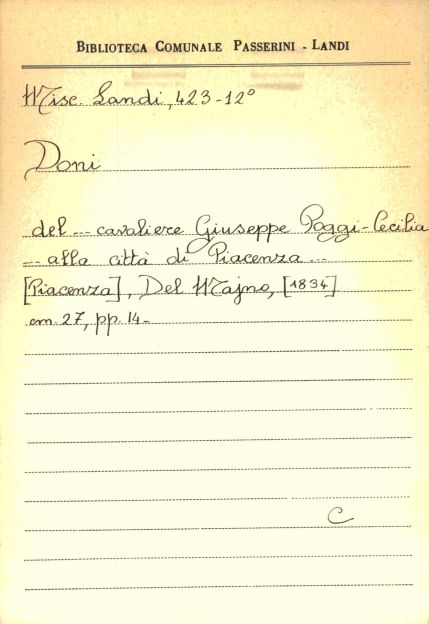 BIBLIOTECA COMUNALE PASSERINI - LANDI
Misc. Landi, 423-12°
Doni
del ... cavaliere Giuseppe Poggi-Cecilia
... alla città di Piacenza ...
[Piacenza], Del Majno, [1834]
cm. 27, pp. 14.
C